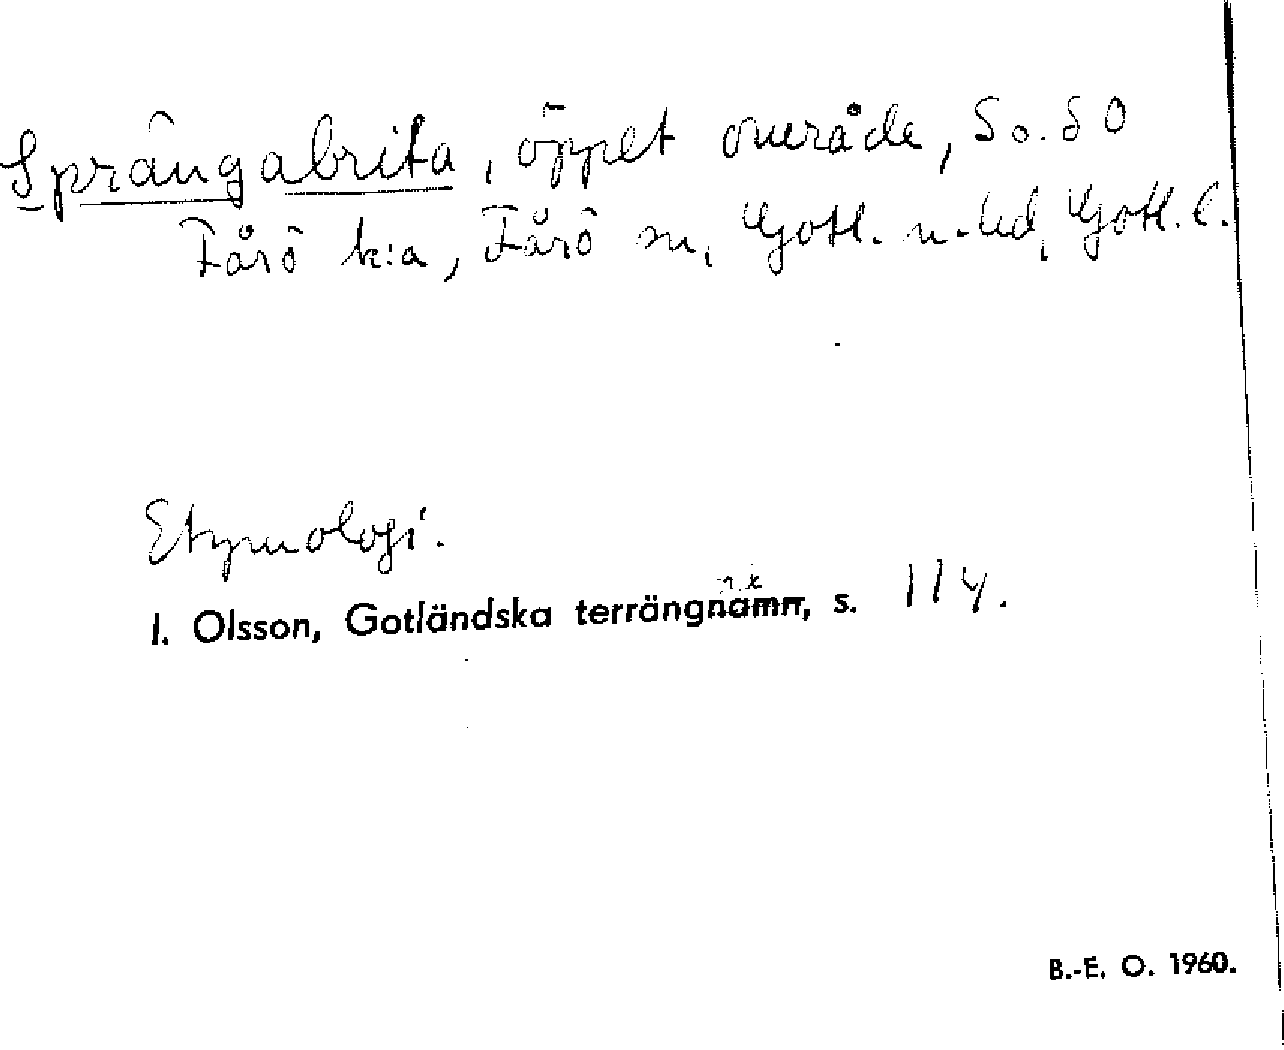 Sprängabrita, öppet område, S o. SO
Fårö k:a, Fårö sn, Gotl. n. hd, Gotl. l.
Etymologi.
I. Olsson, Gotländska terrängnamn, s. 114.
B.-E. O. 1960.